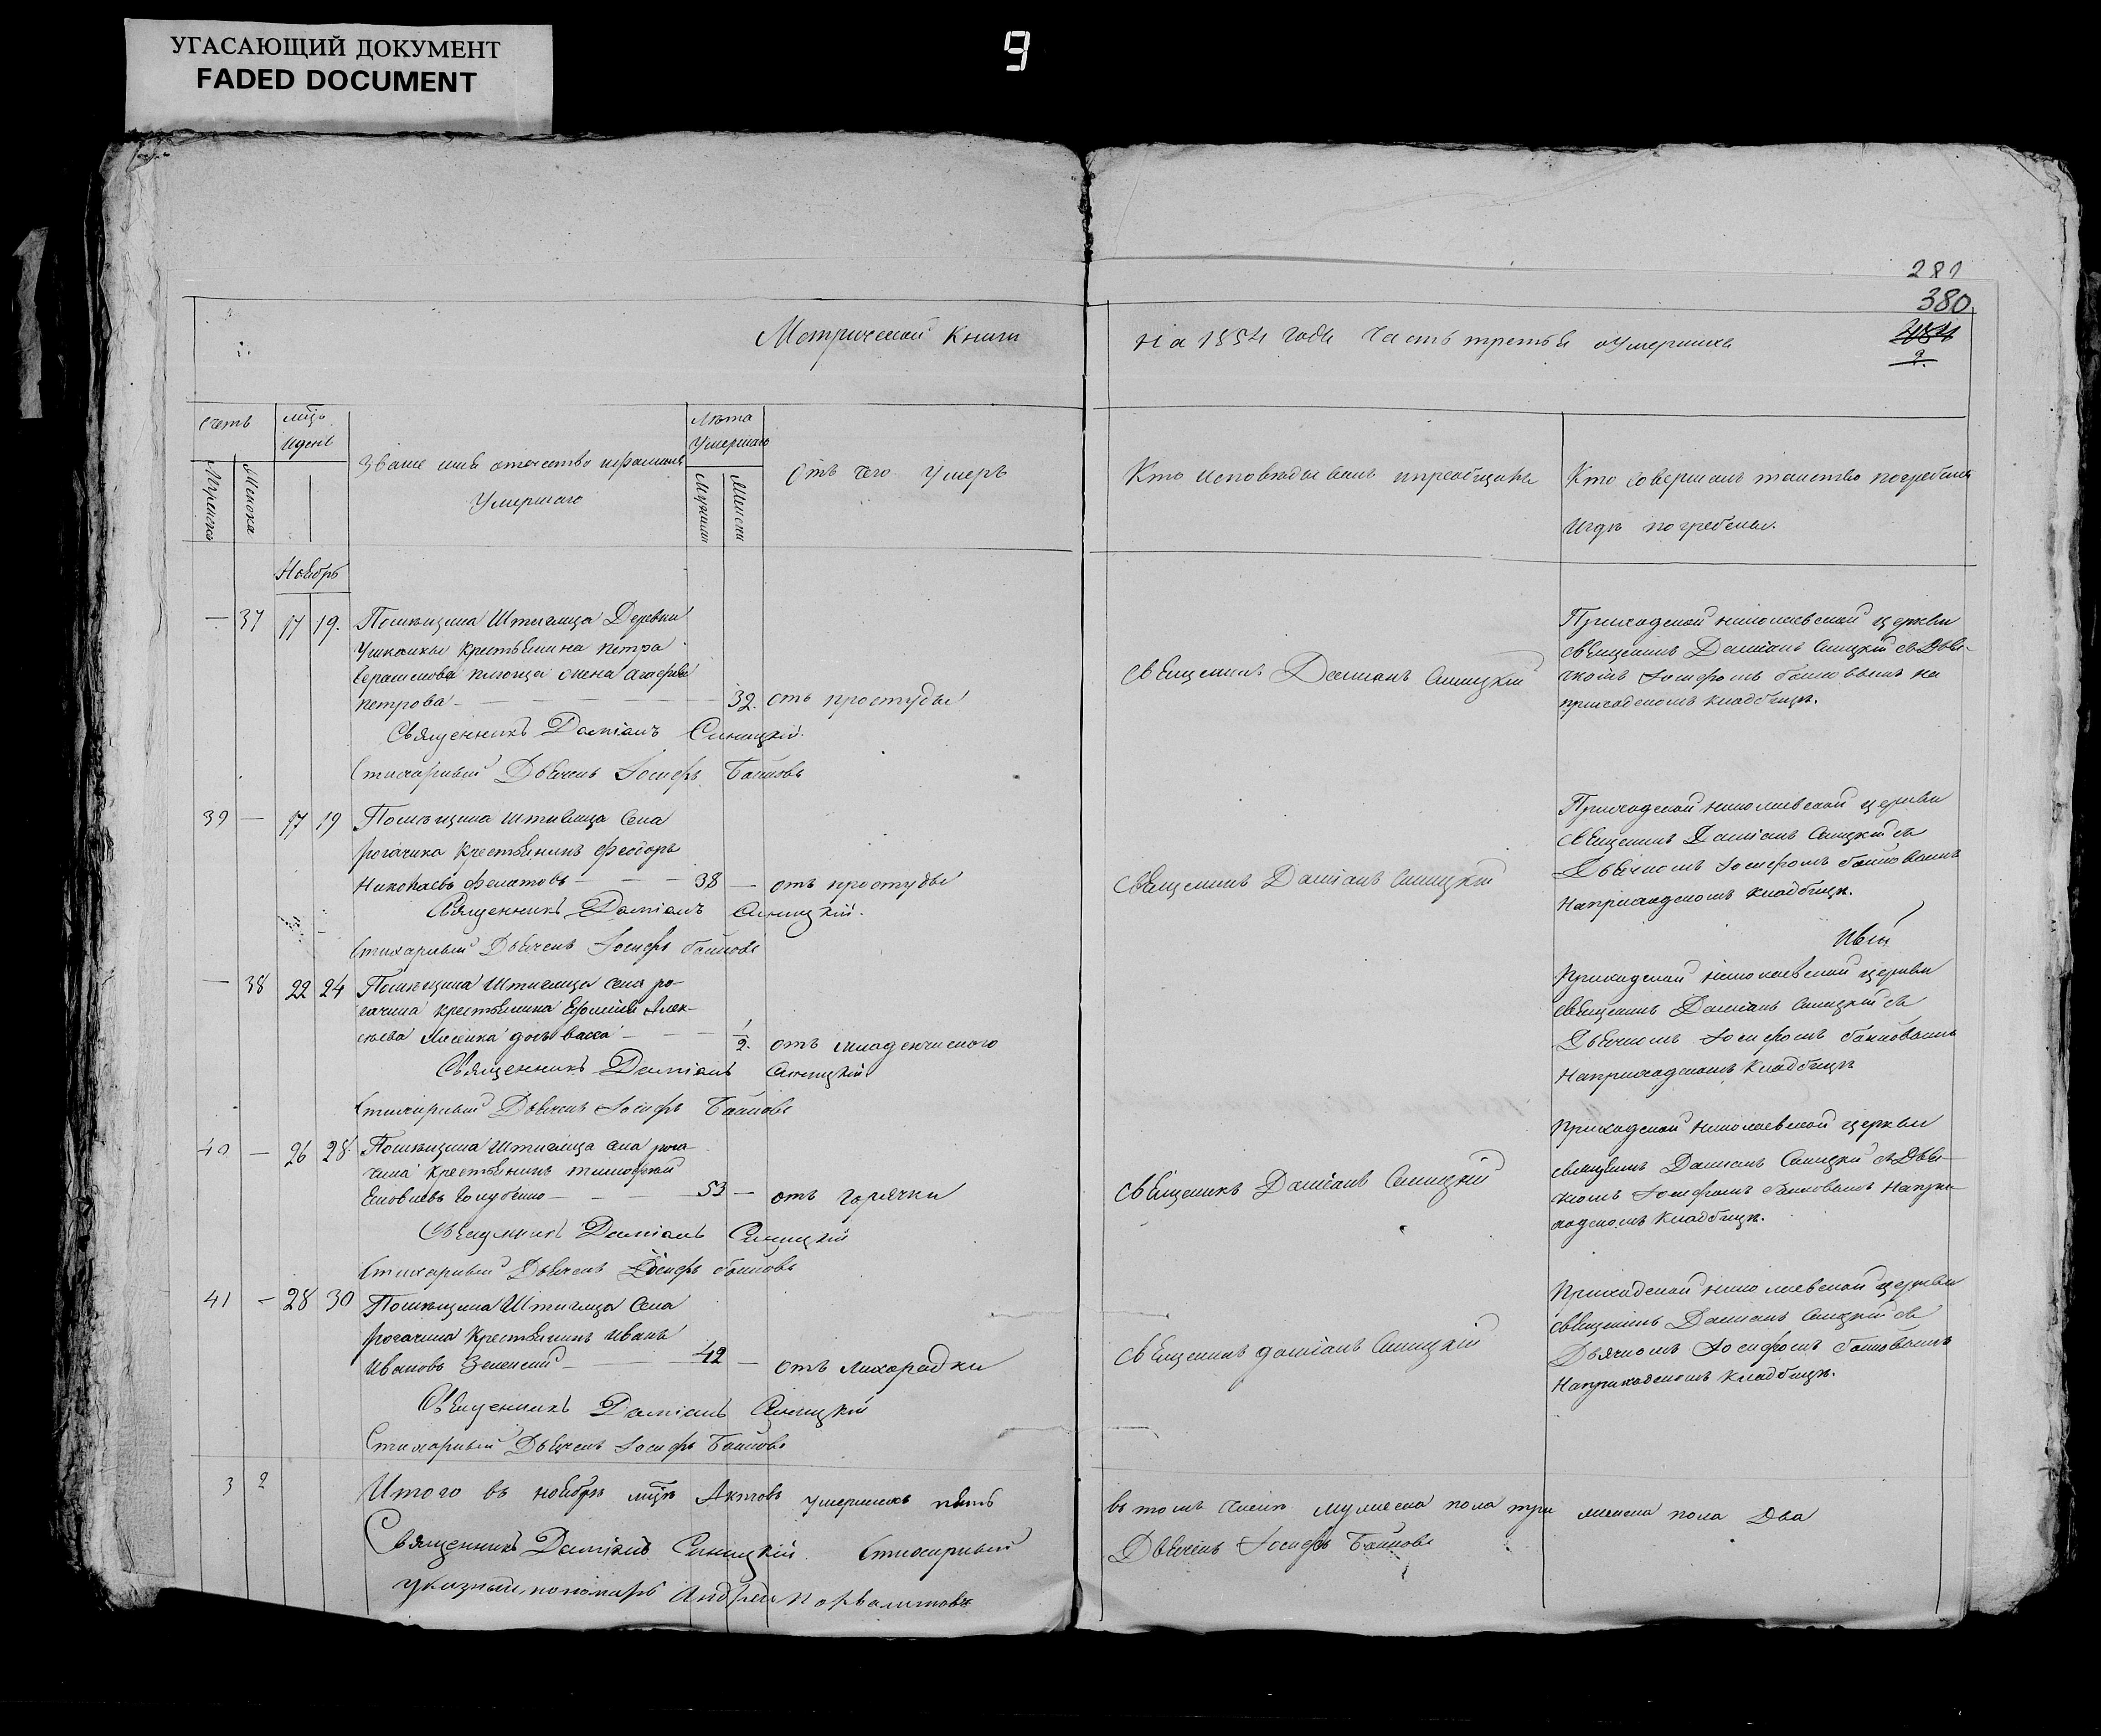 УГАСАЮЩИЙ ДОКУМЕНТ
FADED DOCUMENT
9
281
380
Метрической Книги
на 1854 годъ Часть третья о Умершихъ
Счетъ
мѣць
и день
Званіе имя отечество и фамилія
Умершаго
Лѣта
Умершаго
Отъ чего умеръ
Кто исповѣдывалъ и пріобщалъ
Кто совершалъ таинство погребенія
и гдѣ погребены.
Ноябрь
— 37 17 19. Помѣщика Штиглица Деревни
Ушкалки крестьянина Петра
жена Агафія
Петрова — 32. отъ простуды
Священникъ Даміанъ Синицкій
Приходской николаевской церкви
священникъ Даміанъ Синицкій съ Дья-
чкомъ Іосифомъ на
приходскомъ кладбищѣ.
Священникъ Даміанъ Синицкій.
Стихарный Дьячекъ Іосифъ
39 — 17 19 Помѣщика Штиглица Села
рогачика Крестьянинъ Феодоръ
Николаевъ Филатовъ — 38 — отъ простуды
Священникъ Даміанъ Синицкій
Приходской николаевской церкви
священникъ Даміанъ Синицкій съ
Дьячкомъ Іосифомъ
На приходскомъ кладбищѣ.
Священникъ Даміанъ Синицкій.
Стихарный Дьячекъ Іосифъ
— 38 22 24 Помѣщика Штиглица села ро-
гачика крестьянина Алек-
сѣева дочь васса — 1/2. отъ младенческаго
Приходской николаевской церкви
священникъ Даміанъ Синицкій съ
Дьячкомъ Іосифомъ
На приходскомъ Кладбищѣ
Священникъ Даміанъ Синицкій
Стихарный Дьячекъ Іосифъ
40 — 26 28. Помѣщика Штиглица села рога-
чика крестьянинъ тимофей
Голубенко — 53 — отъ горячки
Священникъ Даміанъ Синицкій
Приходской николаевской церкви
священникъ Даміанъ Синицкій съ Дья-
чкомъ Іосифомъ На при-
ходскомъ Кладбищѣ.
Священникъ Даміанъ Синицкій
Стихарный Дьячекъ Іосифъ
41 — 28 30 Помѣщика Штиглица Села
рогачика Крестьянинъ иванъ
Ивановъ Зеленскій — 42 — отъ лихорадки
Священникъ даміанъ Синицкій
Приходской николаевской церкви
священникъ Даміанъ Синицкій съ
Дьячкомъ Іосифомъ
На приходскомъ кладбищѣ.
Священникъ Даміанъ Синицкій
Стихарный Дьячекъ Іосифъ
3 2 Итого въ ноябрѣ мцѣ Актовъ умершихъ пять
въ томъ числѣ мужеска пола три женска пола Два
Священникъ Даміанъ Синицкій. Стихарный
Дьячекъ Іосифъ
указный пономарь Андрей